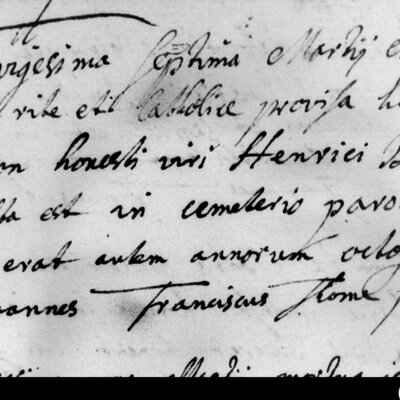 vigesima septima Martij
rite et Catholice provisa
honesti viri Henrici
est in cemeterio paro
erat autem annorum octo
oannes Franciscus Thome